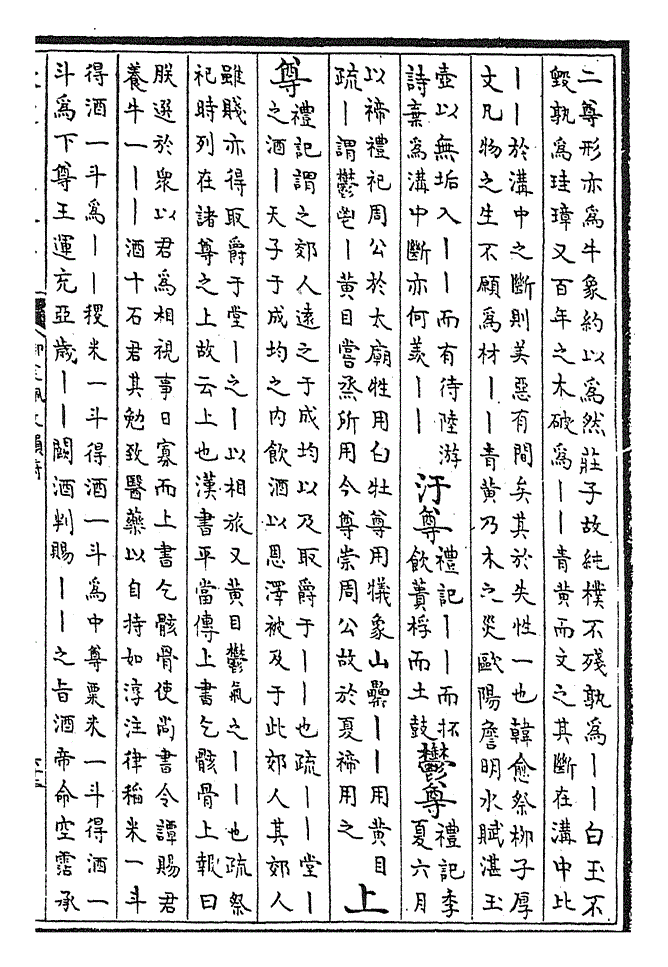 二尊形亦為牛象約以為然莊子故純樸不殘孰為丨丨白玉不
毀孰為珪璋又百年之木破為丨丨青黃而文之其斷在溝中比
丨丨於溝中之斷則美惡有間矣其於失性一也韓愈祭柳子厚
文凡物之生不願為材丨丨青黃乃木之災歐陽詹明水賦湛玉
壺以無垢入丨丨而有待陸游
詩棄為溝中斷亦何羨丨丨
汙尊
禮記丨丨而抔
飲蕢桴而土鼓
鬱尊
禮記季
夏六月
以禘禮祀周公於太廟牲用白牡尊用犧象山罍丨丨用黃目
疏丨謂鬱鬯丨黃目嘗烝所用今尊崇周公故於夏禘用之
上
尊
禮記謂之郊人遠之于成均以及取爵于丨丨也疏丨丨堂丨
之酒丨天子于成均之內飲酒以恩澤被及于此郊人其郊人
雖賤亦得取爵于堂丨之丨以相旅又黃目鬱氣之丨丨也疏祭
祀時列在諸尊之上故云上也漢書平當傳上書乞骸骨上報曰
朕選於衆以君為相視事日寡而上書乞骸骨使尚書令譚賜君
養牛一丨丨酒十石君其勉致醫藥以自持如淳注律稻米一斗
得酒一斗為丨丨稷米一斗得酒一斗為中尊粟米一斗得酒一
斗為下尊王運充亞歲丨丨闕酒判賜丨丨之旨酒帝命空霑承